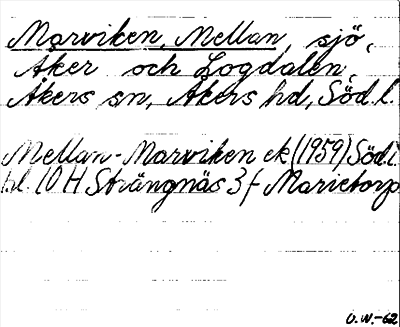 Marviken, Mellan, sjö,
Åker och Logdalen,
Åkers sn, Åkers hd, Söd. l.
Mellan-Marviken ek (1959) Söd. l.
bl. 10 H Strängnäs 3 f Marietorp
O.W.-62